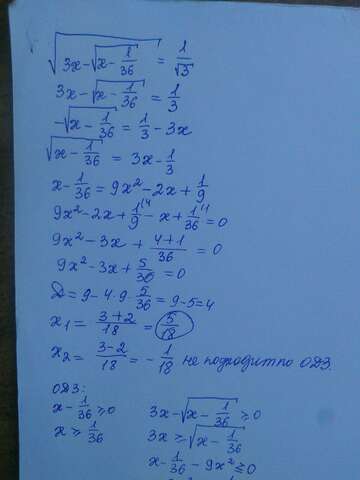 √(3x-√(x-1/36)) = 1/√3
3x-√(x-1/36) = 1/3
-√(x-1/36) = 1/3 - 3x
√(x-1/36) = 3x-1/3
x-1/36 = 9x²-2x+1/9
9x²-2x+1/9^(4 - x+1/36^(1 =0
9x²-3x + (4+1)/36 = 0
9x²-3x+5/36 =0
D=9-4·9·5/36=9-5=4
x₁= (3+2)/18 = 5/18
x₂= (3-2)/18 = -1/18 не подходит по ОДЗ.
ОДЗ:
x-1/36≥0 3x-√(x-1/36) ≥0
x≥1/36 3x≥√(x-1/36)
x-1/36-9x²≥0